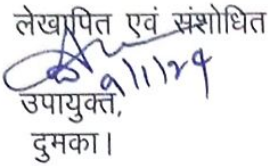 लेखापित एवं संशोधित
9/1/24
उपायुक्त,
दुमका।